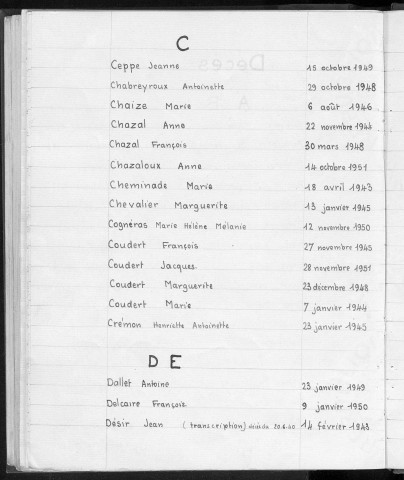 C
Ceppe Jeanne 15 octobre 1949
Chabreyroux Antoinette 29 octobre 1948
Chaize Marie 6 août 1946
Chazal Anne 22 novembre
Chazal François 30 mars 1948
Chazaloux Anne 14 octobre 1951
Cheminade Marie 18 avril 1943
Chevalier Marguerite 13 janvier 1945
Cognéras Marie Hélène Mélanie 12 novembre 1950
Coudert François 27 novembre 1945
Coudert Jacques 28 novembre 1951
Coudert Marguerite 23 décembre 1948
Coudert Marie 7 janvier 1944
Crémon Henriette Antoinette 23 janvier 1945
D E
Dallet Antoine 23 janvier 1949
Delcaire François 9 janvier 1950
Désir Jean (transcription) 14 février 1943